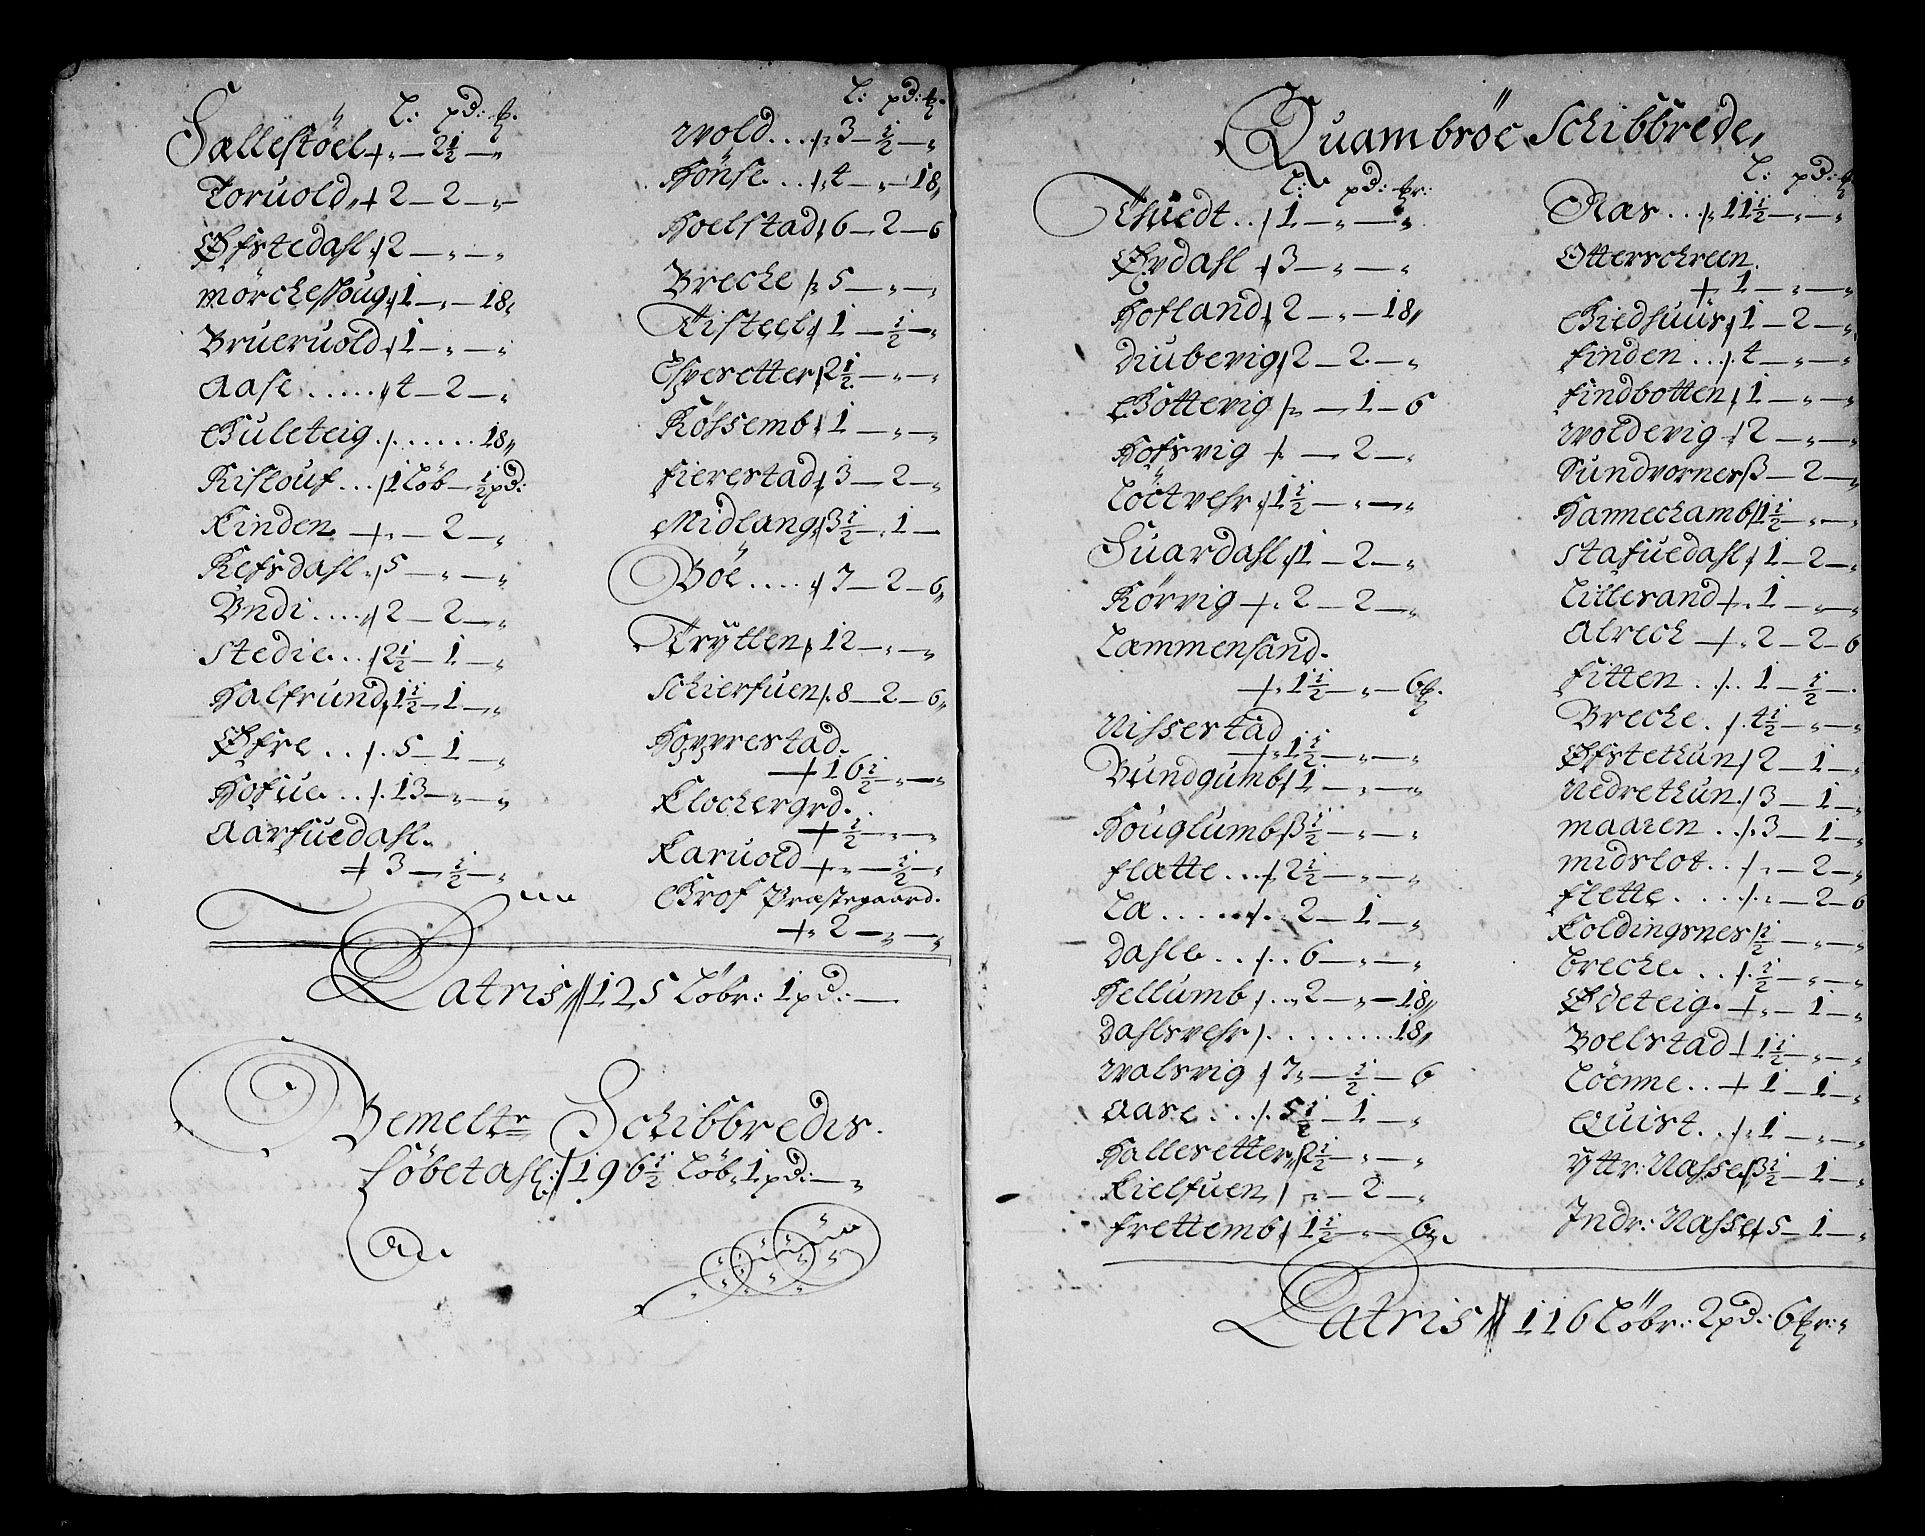 L: pd: fr.
Sællestöel + „ — 2½ — „
Toruold + 2 — 2 — „
Øfstedahl 2 — „ — „
Mörchesoug 1 — „ — 18„
Brueruold 1 — „ — „
Aase ..... 4 — 2 — „
Guleteig ........ 18„
Rislouf ... 1 löb — ½ pd:
Linden + „ — 2 — „
Refsdahl 5 — „ — „
Undi .... 2 — 2 — „
Stedie ... 2½ — 1 — „
Halfrund 1½ — 1 — „
Øfre ... 5 — 1 — „
Hofue ... 13 — „ — „
Aarfuedahl.
+ 3 — ½ — „
L: pd: fr.
Wold ... 3 — ½ — „
Hönse ... 4 — „ — 18„
Hoelstad 6 — 2 — 6
Breche 5 — „ — „
Tisteel 1 — ½ — „
Espesetter 2½ — „ — „
Rössemb 1 — „ — „
Fierestad 3 — 2 — „
Midlang 3½ — 1 —
Böe ..... 7 — 2 — 6„
Trÿtten 12 — „ — „
Schierfuen 8 — 2 — 6„
Hopprestad.
+ 16½ — „ — „
Klochergrd.
+ ½ — „ — „
Karuold + „ — ½ — „
Grof Præstegaard.
+ „ 2 — „ — „
Latris 125 Löbr: 1 pd: —
Bemeltr Schibbredis.
Löbetahl: 196½ Löb 1 pd: — „
Quambröe Schibbrede,
L: pd: fr:
Thuedt .. 1 — „ — „
Øvdahl 3 — „ — „
Hofland 2 — „ — 18„
Diubevig 2 — 2 — „
Gottevig „ — 1 — 6
Hofsvig + — 2 — „
Löötvehr 1½ — „ — „
Suardahl 1 — 2 — „
Körvig + 2 — 2 — „
Lammensand.
+ 1½ — „ — 6 fr.
Nissestad
+ 1½ — „ — „
Bundgumb 1 — „ — „
Houglumb 3½ — „ — „
Flatte ... 2½ — „ — „
Læ ...... 2 — 1 — „
Dahle ... 6 — „ — „
Hellumb ... 2 — „ — 18„
Dahlsvehr ......... 18„
Walsvig 7 — ½ — 6
Aase ... 5½ — 1 — „
Hallesetter 2½ — „ — „
Kielfuen „ — 2 — „
Frettemb 1½ — „ — 6„
L: pd: fr
Næs ... 11½ — „ — „
Otterschreen.
+ 1 — „ — „
Giedhuus 1 — 2 — „
Finden ... 4 — „ — „
Findbotten 1 — „ — „
Woldevig 2 — „ — „
Sundvornes 3 — 2 — „
Hannechamb 1½ — „ — „
Stafuedahl 1 — 2 — „
Lillesand + 1 — „ — „
Alrech + 2 — 2 — 6
Fitten ... 1 — ½ — „
Breche .. 4½ — „ — „
Øfstethun 2 — 1 — „
Nedrethun 3 — 1 — „
Maaren ... 3 — 1 — „
Midslot ... „ — 2 — „
Flette ..... „ — 2 — 6
Koldingsnes ½ — „ — „
Breche ... ½ — „ — „
Ødeteig + „ — 1 — „
Boelstad + 1½ — „ — „
Löenne .. + 1 — 1 — „
Quist ... 1 — „ — „
Yttr: Nasse 3½ — 1 — „
Indr: Nasse 5 — 1 — „
Latris 116 Löbr: 2 pd: 6 fr: „